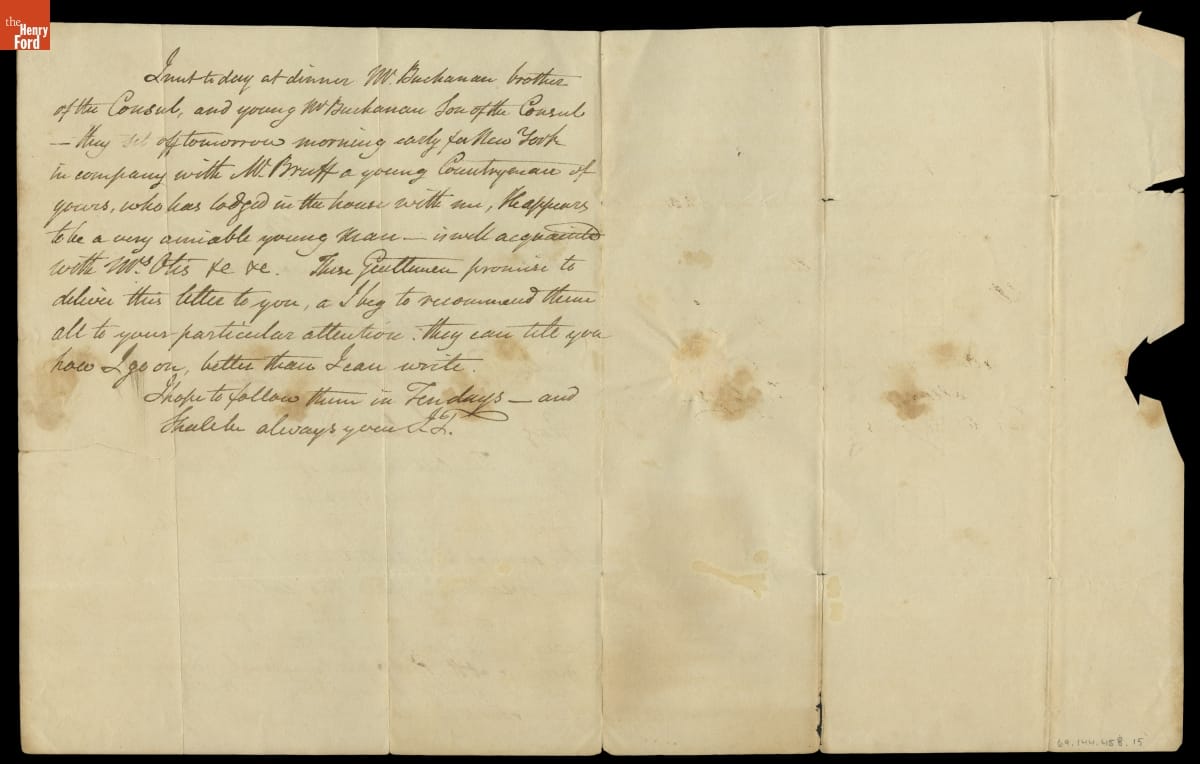 the
Henry
Ford
I met to day at dinner Mr. Buchanan brother
of the Consul, and young Mr Buchanan Son of the Consul
— they set off tomorrow morning early for New York
in company with Mr. Bruff a young Countryman of
yours, who has lodged in the house with me, He appears
to be a very amiable young man — is well acquainted
with Mrs Otis &c &c. These Gentlemen promise to
deliver this letter to you, a I beg to recommend them
all to your particular attention. they can tell you
how I go on, better than I can write.
I hope to follow them in Ten days — and
Shall be always yours J.T.
69.144.458.15